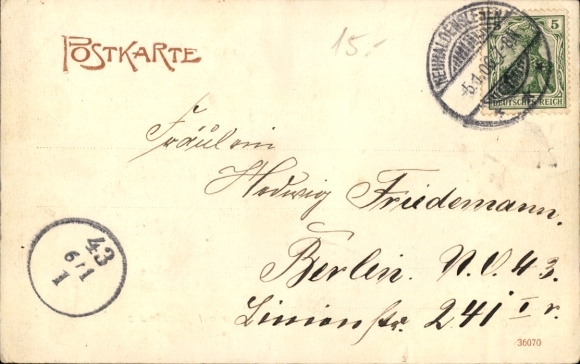 POSTKARTE
15.-
NEUHALDENSLEBEN
5
DEUTSCHES REICH
Fräulein
Hedwig Friedemann.
Berlin. N.O. 43.
Linienstr. 241 I r.
43
6/1
1
36070